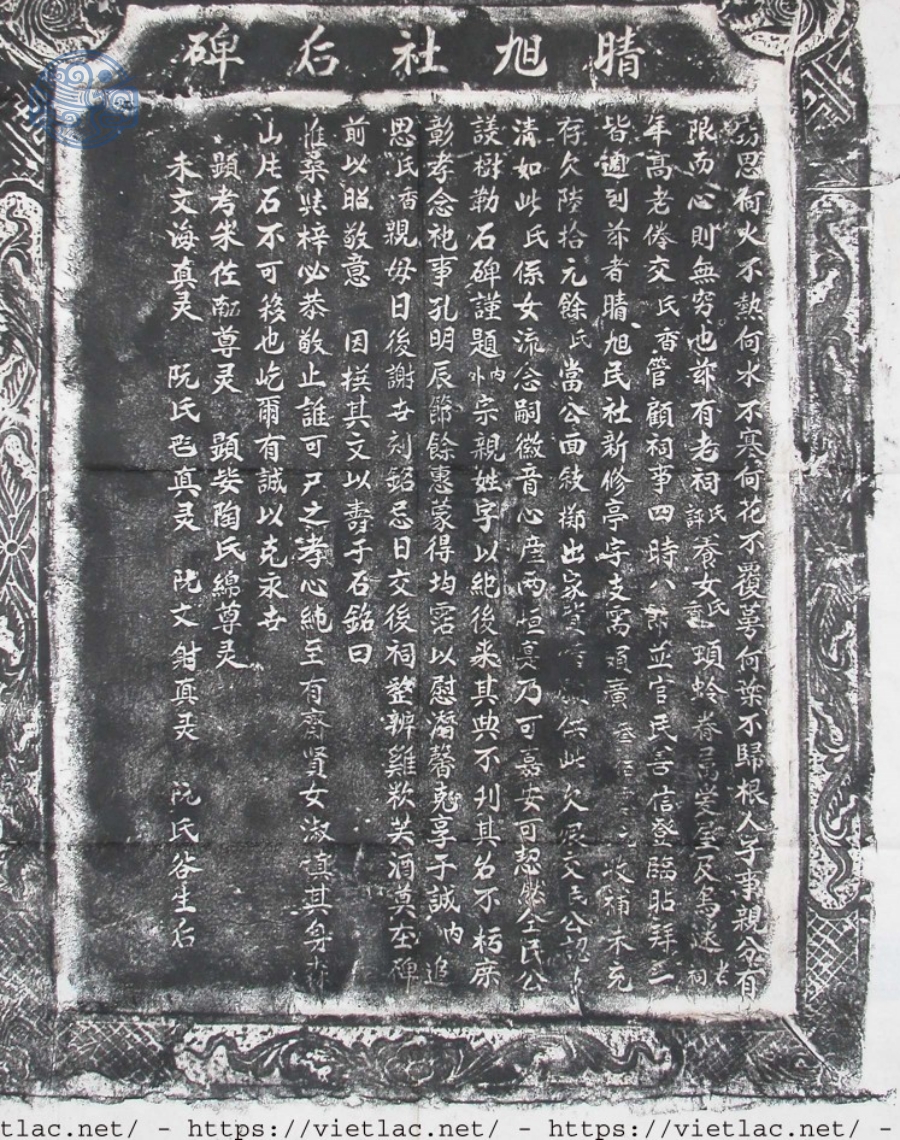 晴旭社后碑
窃思何火不熱何水不寒何花不覆萼何葉不歸根人子事親分有
限而心則無穷也兹有老祠氏評養女氏香䪴蛉眷属受室及為逑祠老
年高老倦交氏香管顧祠事四時八節並官民善信登臨貼拜三
皆適到兹者晴旭民社新修亭宇支需頗廣 收補不充
存欠陸拾元餘氏當公面敍擲出家貲 供此欠艰交民公認
清如此氏係女流念嗣徽音心産两恒寔乃可嘉妥可恝然全民公
議樹勒石碑謹題内外宗親姓字以紀後来其典不刋其名不朽庶
彰孝念祀事孔明辰節餘惠蒙得均霑以慰潛馨尅享于誠内追
思氏香親毋日後謝世刻銘忌日交後祠整辨雞欵芙酒奠在碑
前以昭敬意 因撰其文以壽于石銘曰
惟桑與梓必恭敬止誰可尸之孝心純至有齊賢女淑慎其身
山片石不可移也屹爾有誠以克永世
顕考朱佐 尊灵 顕妣陶氏綿尊灵
朱文海真灵 阮氏 真灵 阮文射真灵 阮氏谷生后
tlac.net/ - https://vietlac.net/ - https://vietlac.net/ -